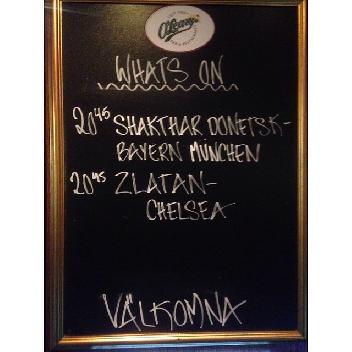 O'Learys
WHATS ON
20⁴⁵ SHAKTHAR DONETSK-
BAYERN MÜNCHEN
20⁴⁵ ZLATAN-
CHELSEA
VÄLKOMNA